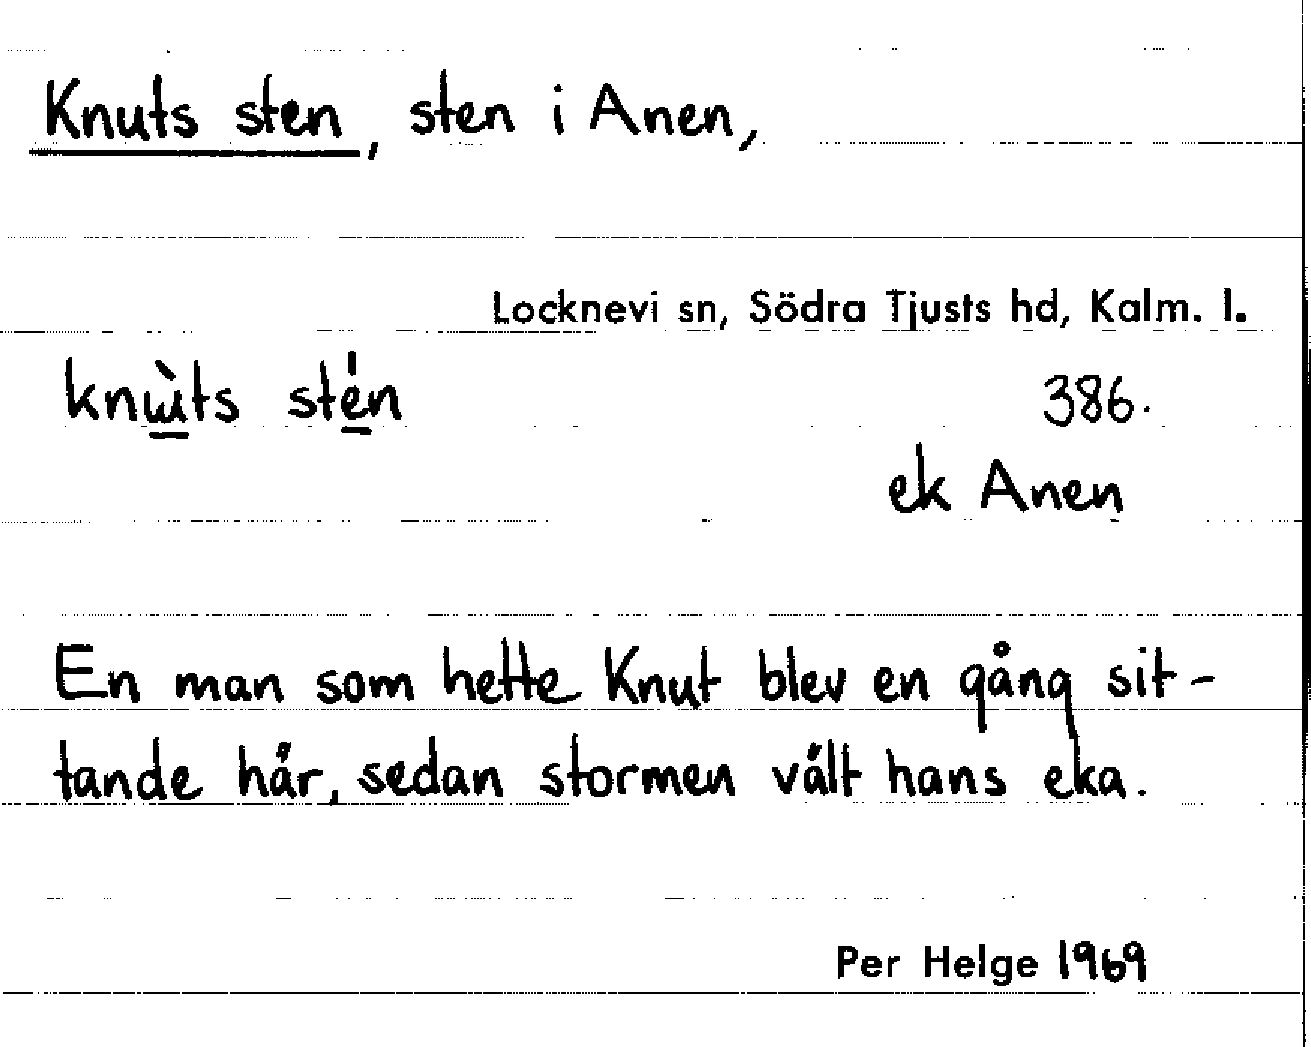 Knuts sten, sten i Anen,
Locknevi sn, Södra Tjusts hd, Kalm. l.
knɯ̀ts stén 386.
ek Anen
En man som hette Knut blev en gång sit-
tande här, sedan stormen vält hans eka.
Per Helge 1969